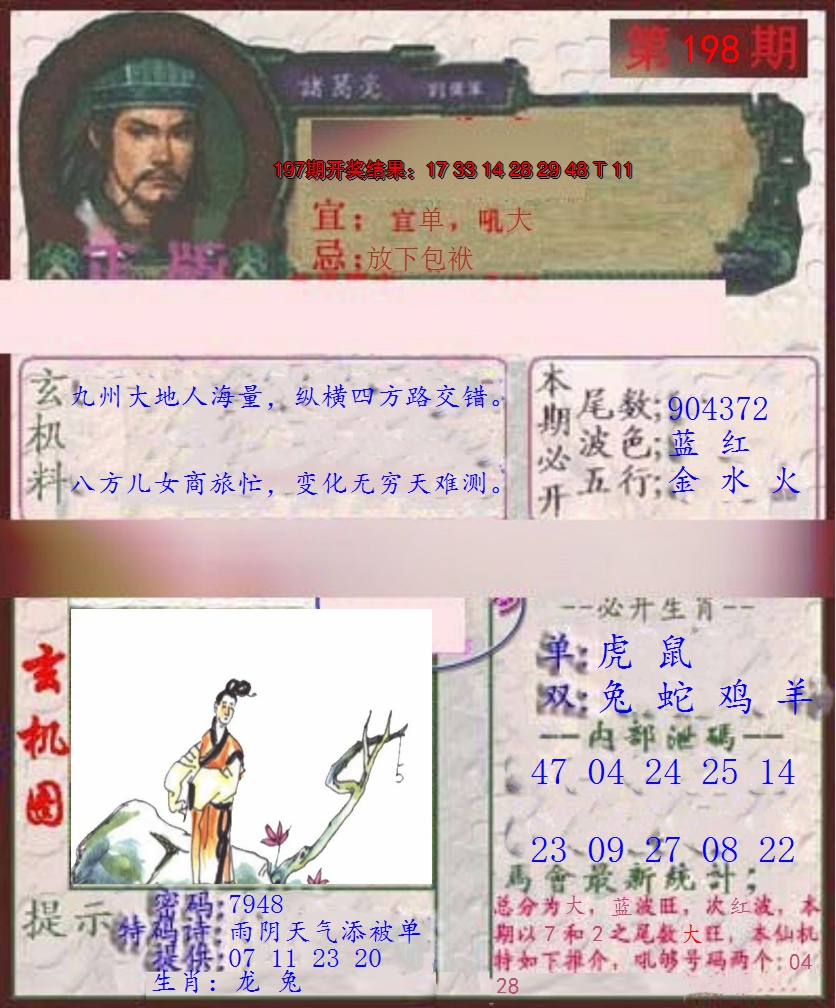 第 198 期
諸葛亮
197期开奖结果：17 33 14 28 29 48 T 11
宜：宜单，吼大
忌：放下包袱
正版
玄机料
九州大地人海量，纵横四方路交错。
八方儿女商旅忙，变化无穷天难测。
本期必开
尾数;904372
波色;蓝 红
五行;金 水 火
玄机图
5
--必开生肖--
单:虎 鼠
双:兔 蛇 鸡 羊
--内部泄碼--
47 04 24 25 14
23 09 27 08 22
馬會最新統計;
总分为大，蓝波旺，次红波，本
期以7和2之尾数大旺，本仙机
特如下推介，吼够号码两个:04
28
提示
密码:7948
特码诗:雨阴天气添被单
提供:07 11 23 20
生肖：龙 兔